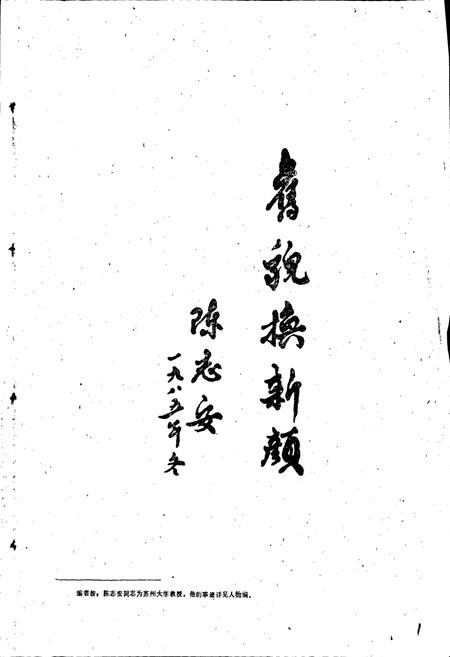 舊貌换新顏
陈志安
一九八五年冬
编者按：陈志安同志为苏州大学教授，他的事迹详见人物编。
1